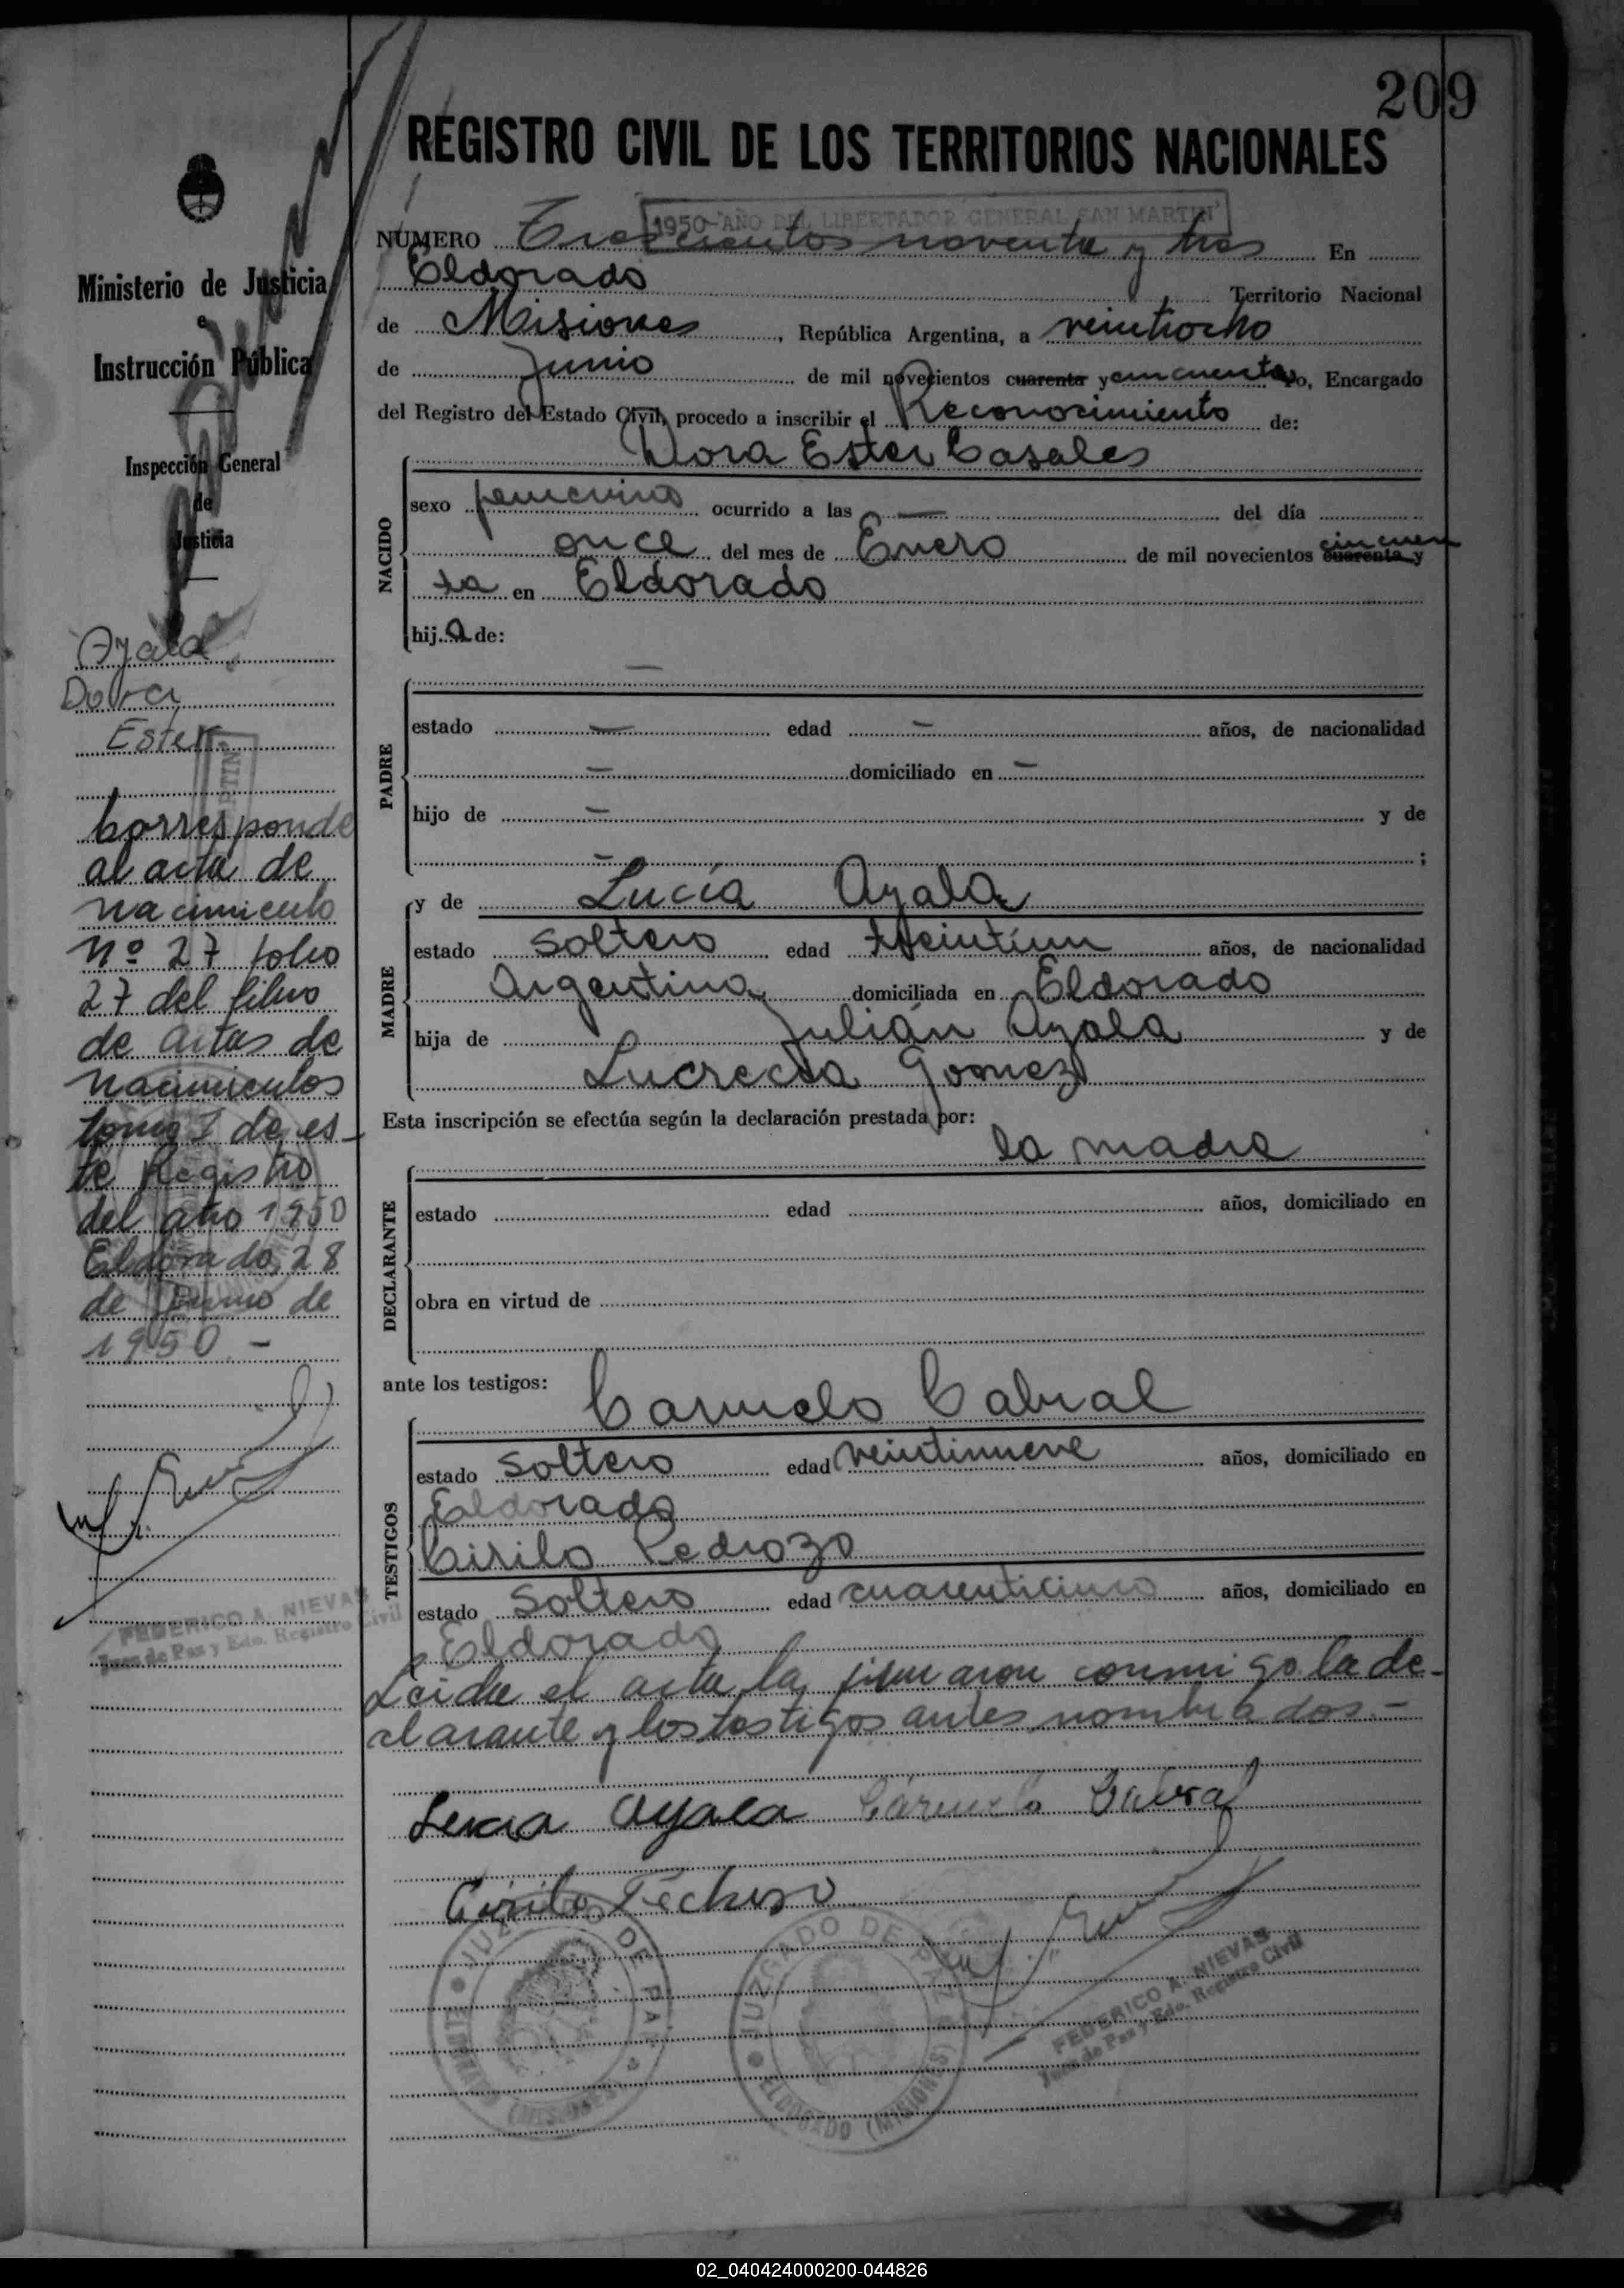 209
REGISTRO CIVIL DE LOS TERRITORIOS NACIONALES
1950-"AÑO DEL LIBERTADOR GENERAL SAN MARTIN"
NÚMERO Trescientos noventa y tres En
Eldorado Territorio Nacional
de Misiones, República Argentina, a veintiocho
de Junio de mil novecientos cuarenta y cincuenta yo, Encargado
del Registro del Estado Civil, procedo a inscribir el Reconocimiento de:
Dora Ester Casales
NACIDO
sexo femenino ocurrido a las — del día
once del mes de Enero de mil novecientos cuarenta y cincuen
ta en Eldorado
hija de:
PADRE
—
estado — edad — años, de nacionalidad
— domiciliado en —
hijo de — y de
— ;
MADRE
y de Lucía Ayala
estado Soltera edad veintiun años, de nacionalidad
Argentina domiciliada en Eldorado
hija de Julián Ayala y de
Lucrecia Gomez
Esta inscripción se efectúa según la declaración prestada por:
la madre
DECLARANTE
estado edad años, domiciliado en
obra en virtud de
ante los testigos:
Carmelo Cabral
TESTIGOS
estado Soltero edad veintinueve años, domiciliado en
Eldorado
Cirilo Pedrozo
estado Soltero edad cuarenticinco años, domiciliado en
Eldorado
Leida el acta, la firmaron conmigo la de-
clarante y los testigos antes nombrados.-
Lucia Ayala Carmelo Cabral
Cirilo Pedroso
JUZGADO DE PAZ
ELDORADO (MISIONES)
JUZGADO DE PAZ
ELDORADO (MISIONES)
FEDERICO A. NIEVAS
Juez de Paz y Edo. Registro Civil
Ministerio de Justicia
e
Instrucción Pública
Inspección General
de
Justicia
Ayala
Dora
Ester
Corresponde
al acta de
nacimiento
Nº 27 folio
27 del libro
de actas de
nacimientos
tomo I de es-
te Registro
del año 1950
Eldorado, 28
de Junio de
1950.-
FEDERICO A. NIEVAS
Juez de Paz y Edo. Registro Civil
02_040424000200-044826